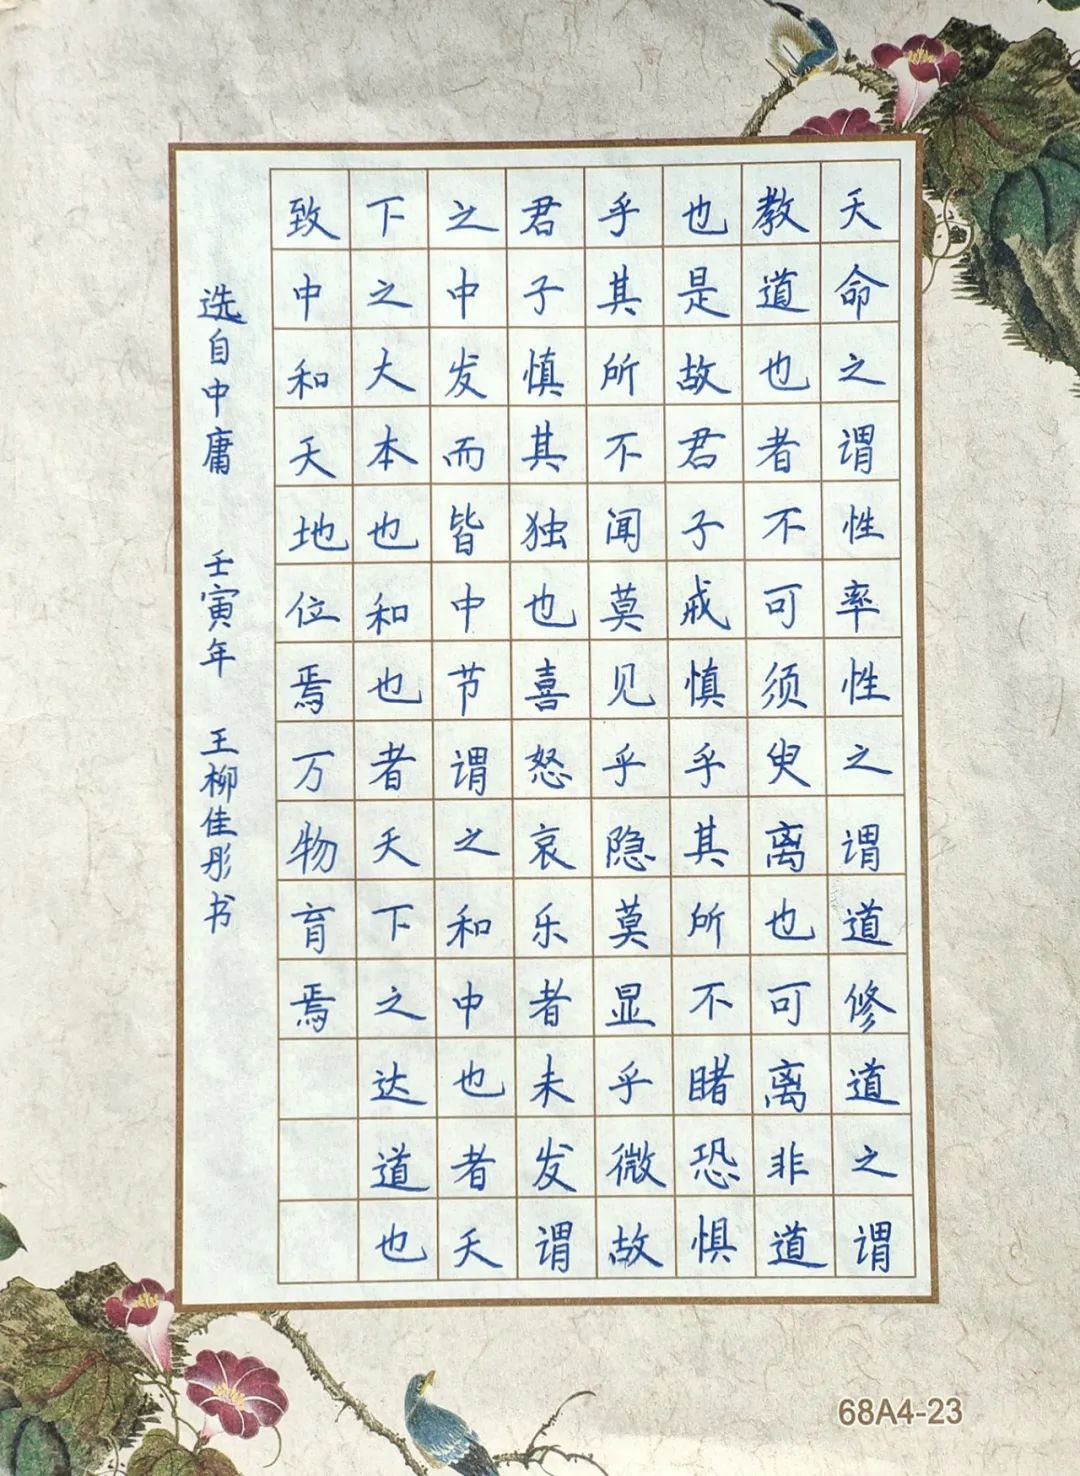 天命之谓性率性之谓道修道之谓
教道也者不可须臾离也可离非道
也是故君子戒慎乎其所不睹恐惧
乎其所不闻莫见乎隐莫显乎微故
君子慎其独也喜怒哀乐者未发谓
之中发而皆中节谓之和中也者天
下之大本也和也者天下之达道也
致中和天地位焉万物育焉
选自中庸 壬寅年 王柳佳彤书
68A4-23